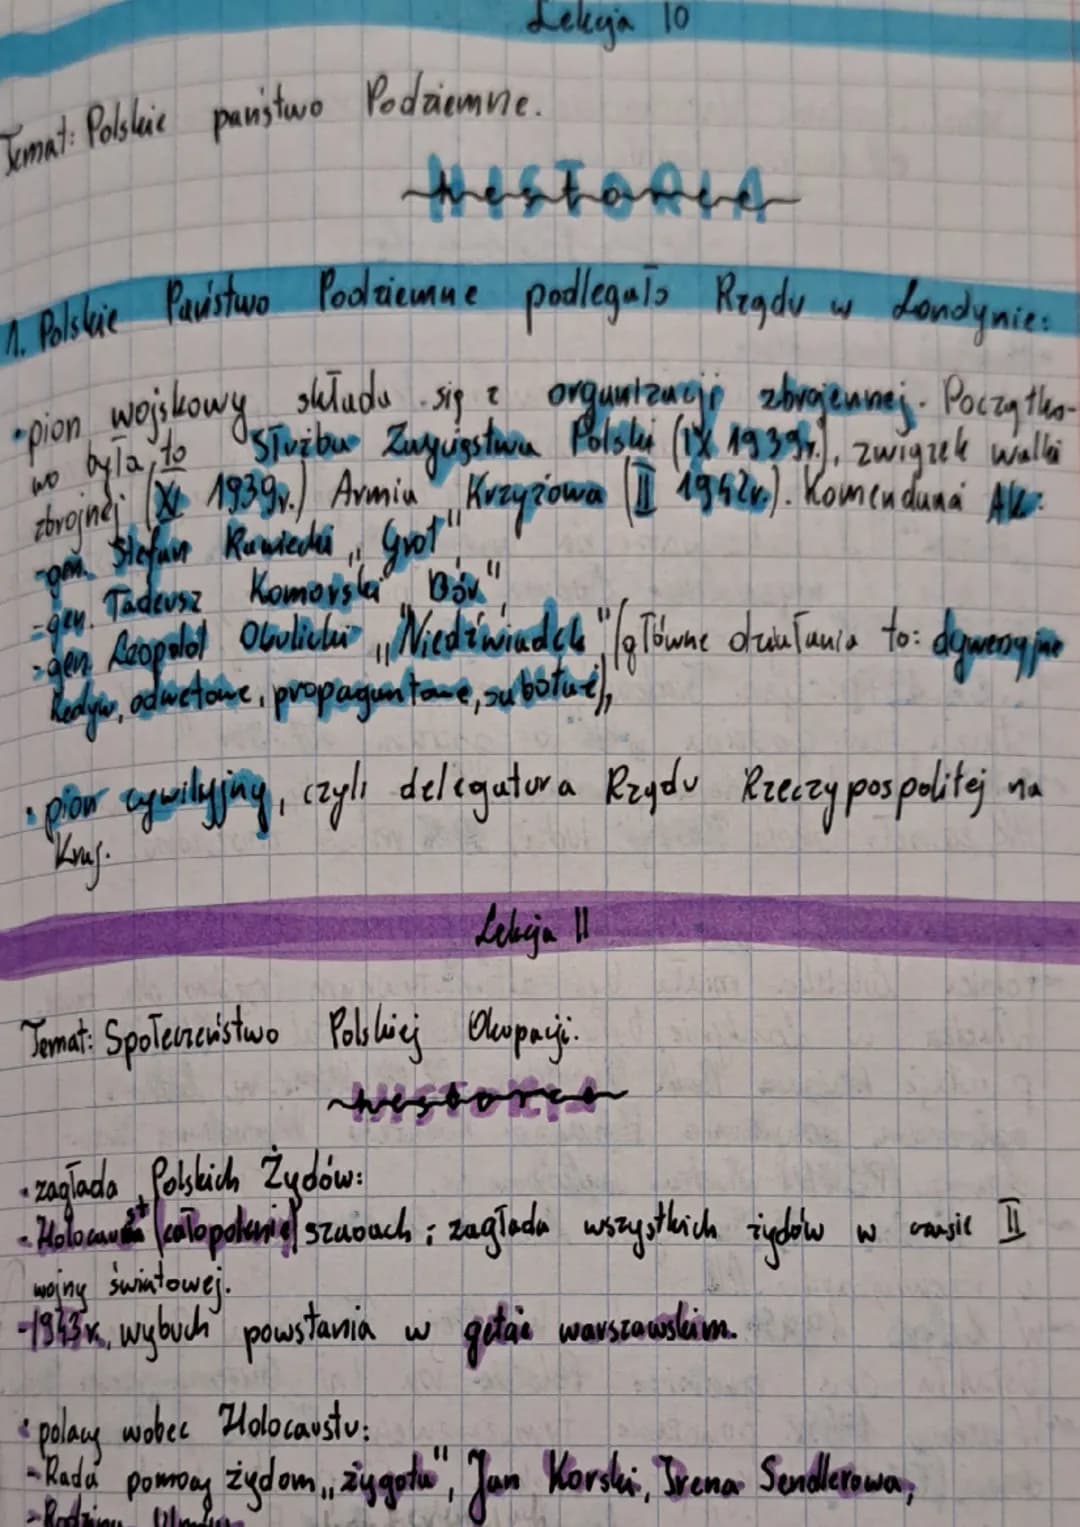 Lekcja 10
Temat: Polskie państwo Podziemne.
HISTORIA
1. Polskie Państwo Podziemne podlegało Rządu w Londynie:
• pion wojskowy składa się z organizacji zbrojennej. Początko-
wo była to Służba Zwycięstwa Polski (IX 1939r.), związek walki
zbrojnej (XI 1939r.) Armia Krzyżowa (II 1942r.). Komenduna AK:
- gen. Stefan Rowiecki „Grot"
- gen. Tadeusz Komorski „Bór"
- gen. Leopold Okulicki „Niedźwiadek" (główne działania to: dywersyjne
Kedyw, odwetowe, propagantowe, sabotaż),
• pion cywilyjny, czyli delegatura Rządu Rzeczypospolitej na
Kraj.
Lekcja 11
Temat: Społeczeństwo Polskiej Okupacji.
HISTORIA
• zagłada Polskich Żydów:
- Holocaust (całopolenie) szaoach ; zagłada wszystkich żydów w czasie II
wojny światowej.
- 1943r. wybuch powstania w getcie warszawskim.
• polacy wobec Holocaustu:
- Rada pomocy żydom „żygota", Jan Korski, Irena Sendlerowa,
- Rodziny